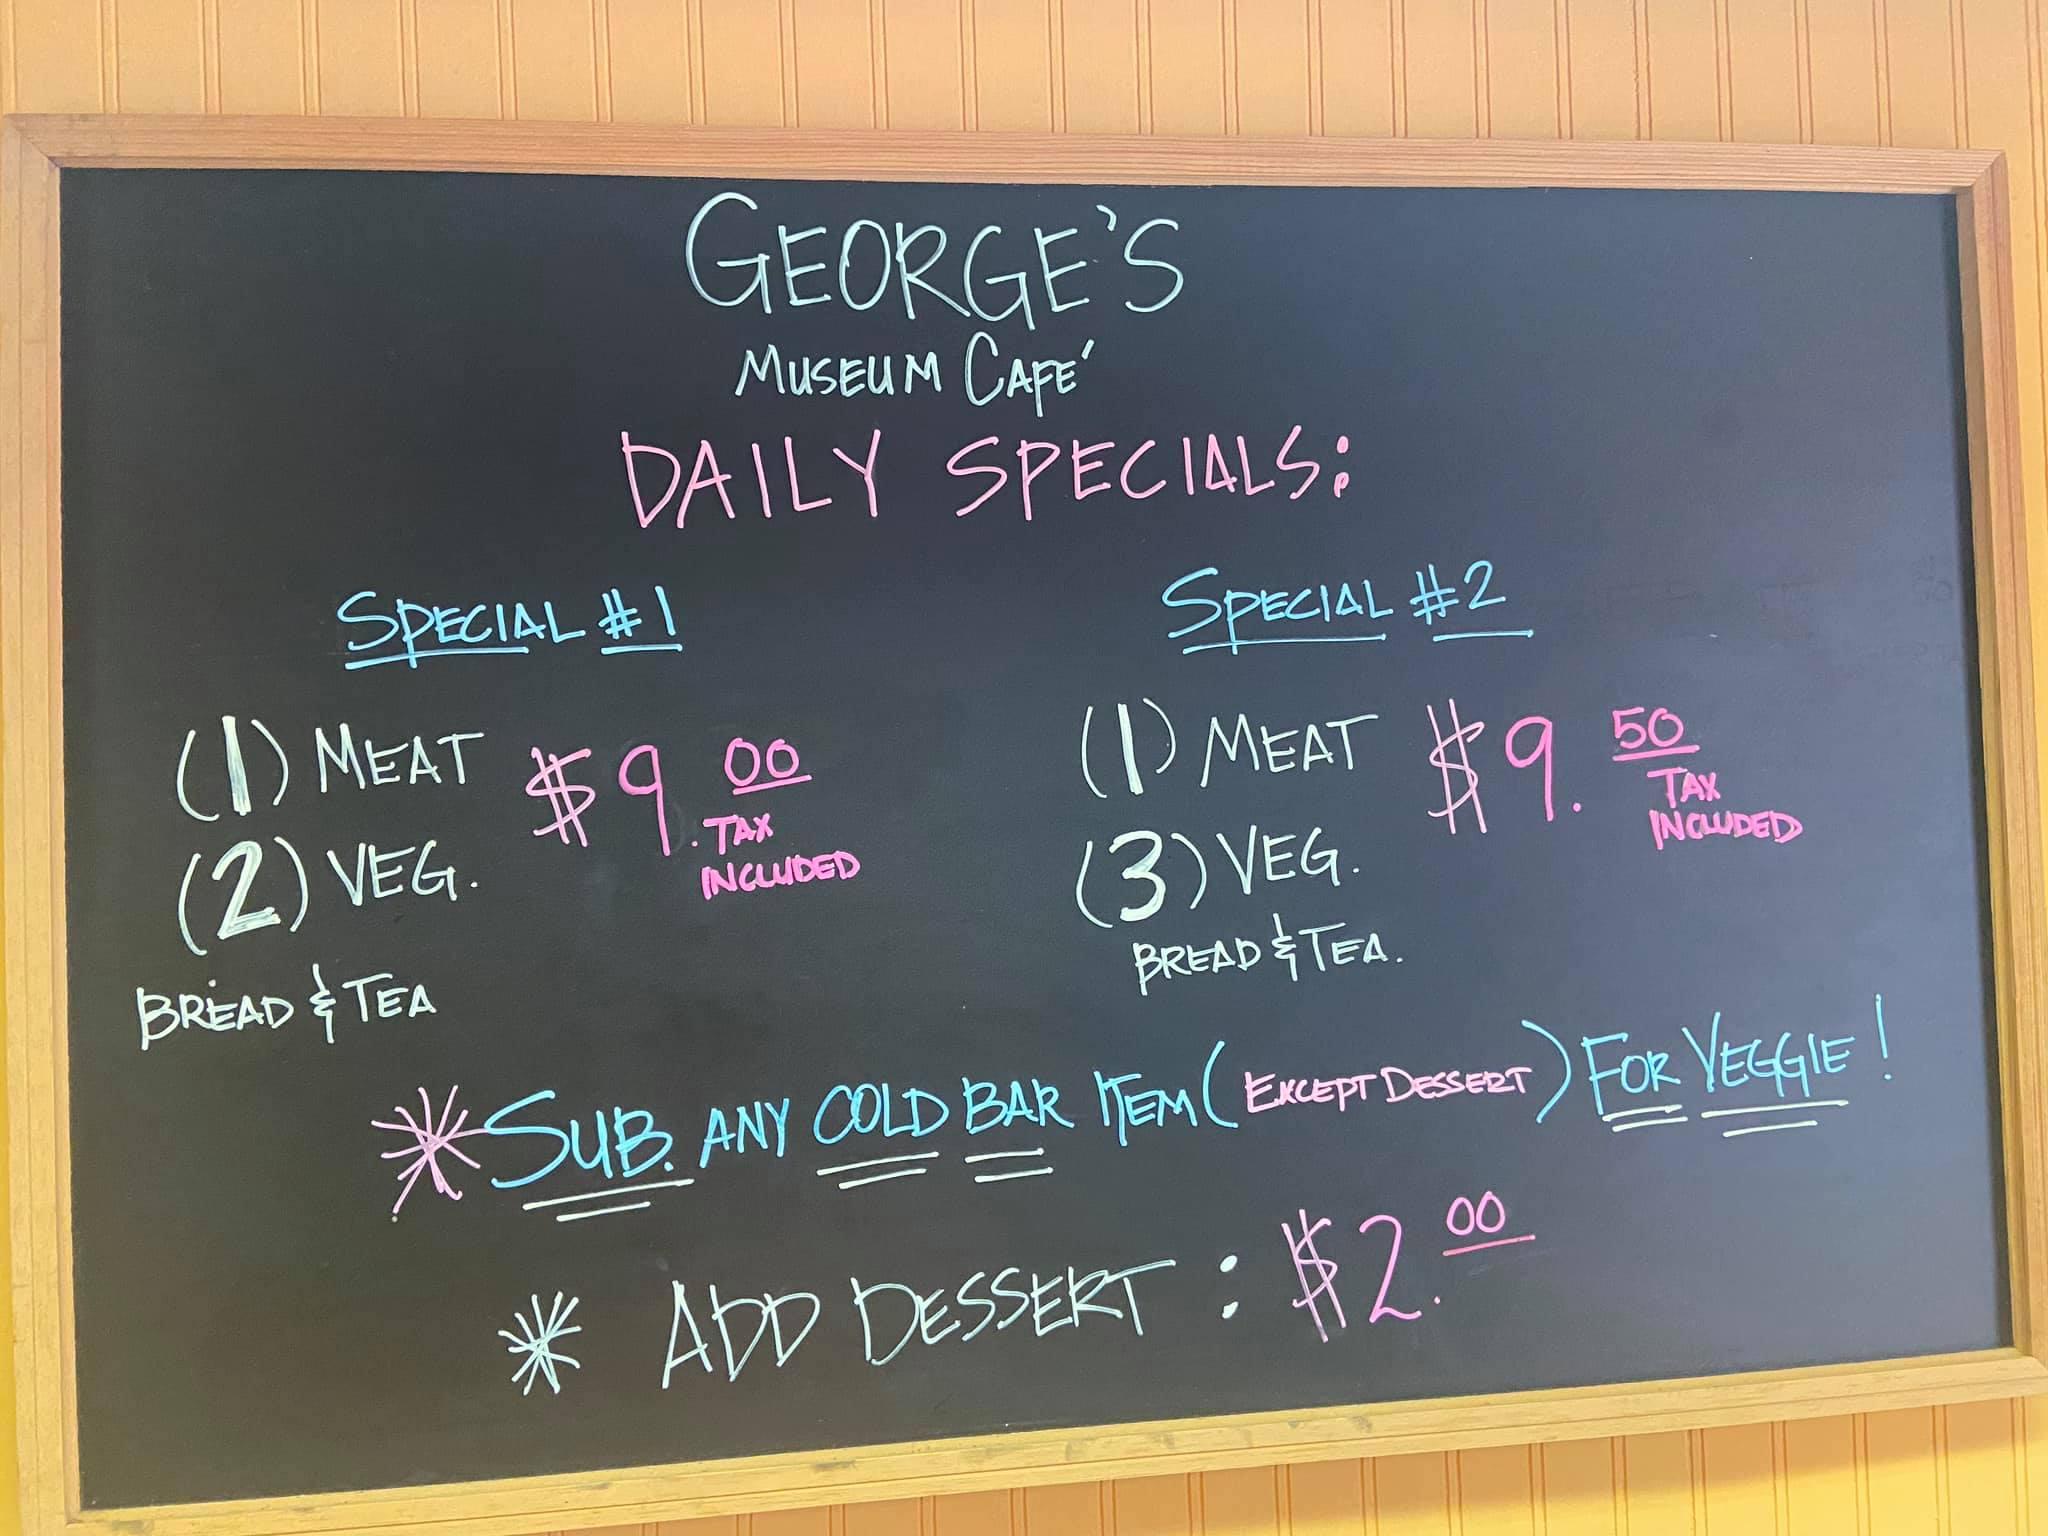 GEORGE'S
MUSEUM CAFE'
DAILY SPECIALS:
SPECIAL #1
(1) MEAT
(2) VEG.
BREAD & TEA
$9.00
TAX
INCLUDED
SPECIAL #2
(1) MEAT
(3) VEG.
BREAD & TEA.
$9.50
TAX
INCLUDED
* SUB. ANY COLD BAR ITEM (EXCEPT DESSERT) FOR VEGGIE!
* ADD DESSERT : $2.00